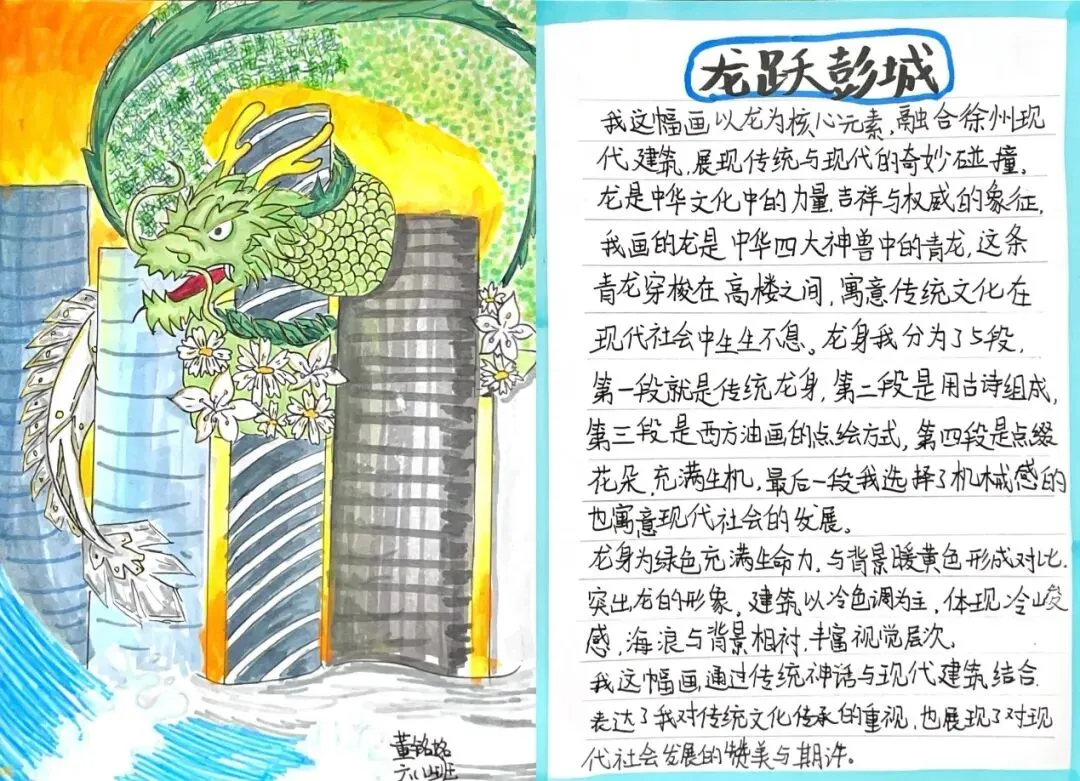 龙跃彭城
我这幅画以龙为核心元素,融合徐州现
代建筑,展现传统与现代的奇妙碰撞。
龙是中华文化中的力量.吉祥与权威的象征,
我画的龙是中华四大神兽中的青龙,这条
青龙穿梭在高楼之间,寓意传统文化在
现代社会中生生不息。龙身我分为了5段,
第一段就是传统龙身,第二段是用古诗组成,
第三段是西方油画的点绘方式,第四段是点缀
花朵,充满生机,最后一段我选择了机械感的
也寓意现代社会的发展。
龙身为绿色充满生命力,与背景暖黄色形成对比.
突出龙的形象,建筑以冷色调为主,体现冷峻
感,海浪与背景相衬,丰富视觉层次。
我这幅画,通过传统神话与现代建筑结合.
表达了我对传统文化传承的重视,也展现了对现
代社会发展的赞美与期许。
黄铭
六(1)班